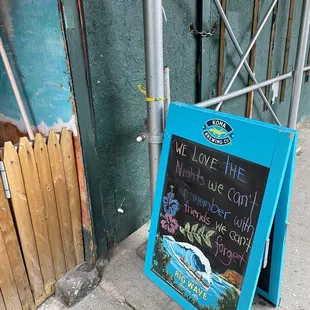 KONA
BREWING CO.
WE LOVE THE
Nights we can't
Remember with
friends we can't
forget
BIG WAVE